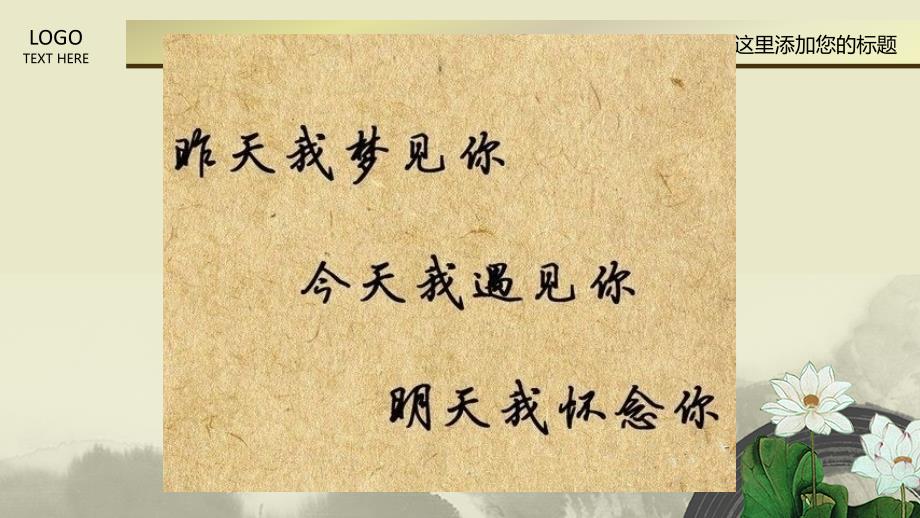 LOGO
TEXT HERE
这里添加您的标题
昨天我梦见你
今天我遇见你
明天我怀念你